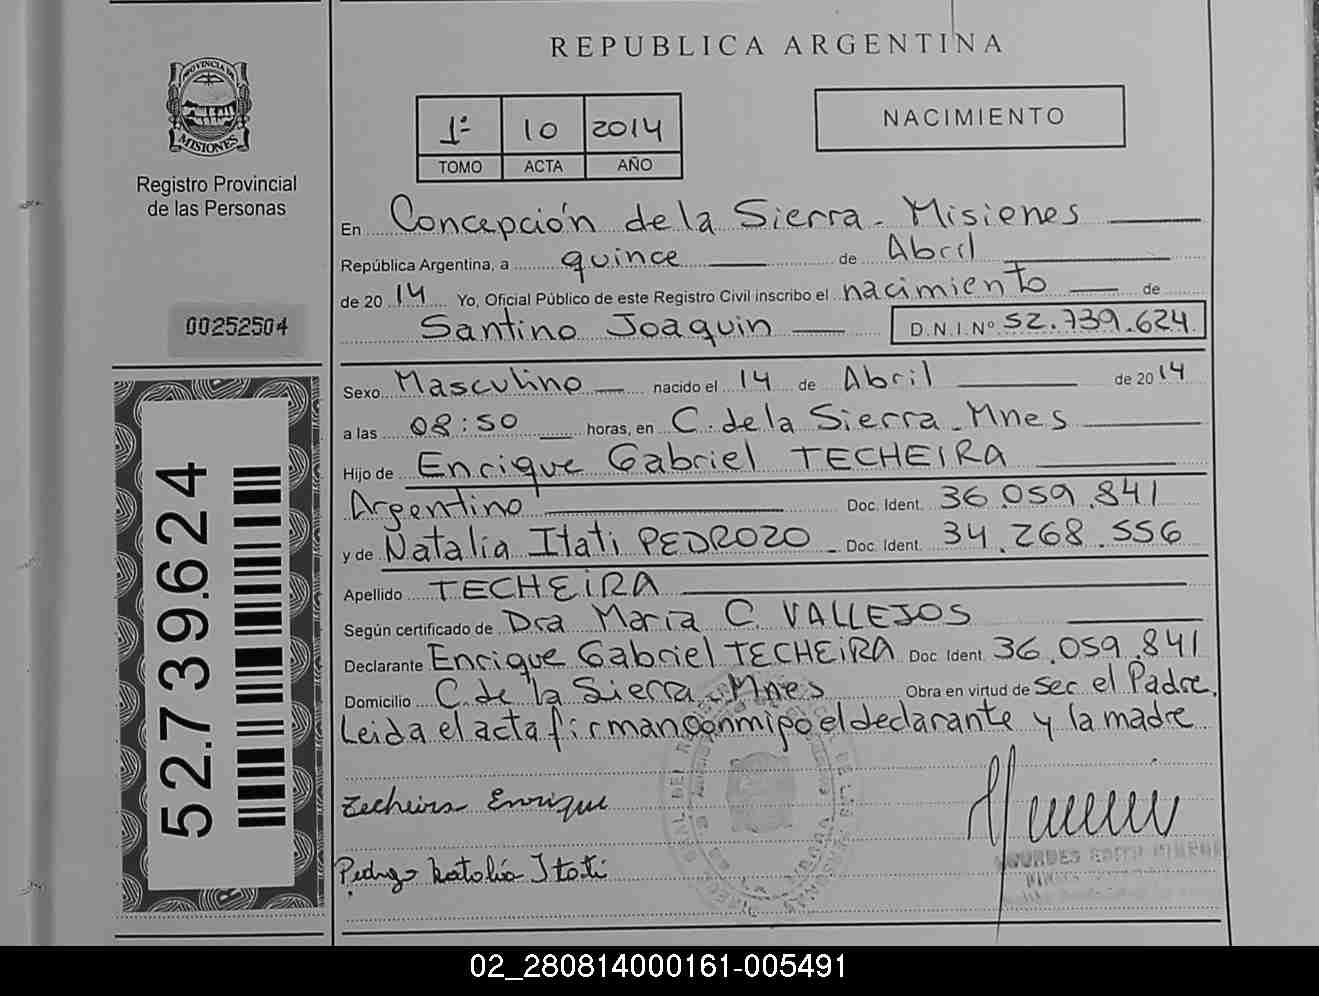 REPUBLICA ARGENTINA
PROVINCIA DE
MISIONES
Registro Provincial
de las Personas
1º 10 2014
TOMO ACTA AÑO
NACIMIENTO
En Concepción de la Sierra - Misiones
República Argentina, a quince de Abril
de 2014 Yo, Oficial Público de este Registro Civil inscribo el nacimiento de
Santino Joaquin D.N.I.Nº 52.739.624
00252504
52.739.624
Sexo Masculino nacido el 14 de Abril de 2014
a las 08:50 horas, en C. de la Sierra - Mnes
Hijo de Enrique Gabriel TECHEIRA
Argentino Doc. Ident. 36.059.841
y de Natalia Itati PEDROZO - Doc. Ident. 34.268.556
Apellido TECHEIRA
Según certificado de Dra Maria C. VALLEJOS
Declarante Enrique Gabriel TECHEIRA Doc. Ident. 36.059.841
Domicilio C. de la Sierra - Mnes Obra en virtud de ser el Padre.
Leida el acta firman conmigo el declarante y la madre
Techeira Enrique
Pedrozo Natalia Itati
LOURDES EDITH
02_280814000161-005491